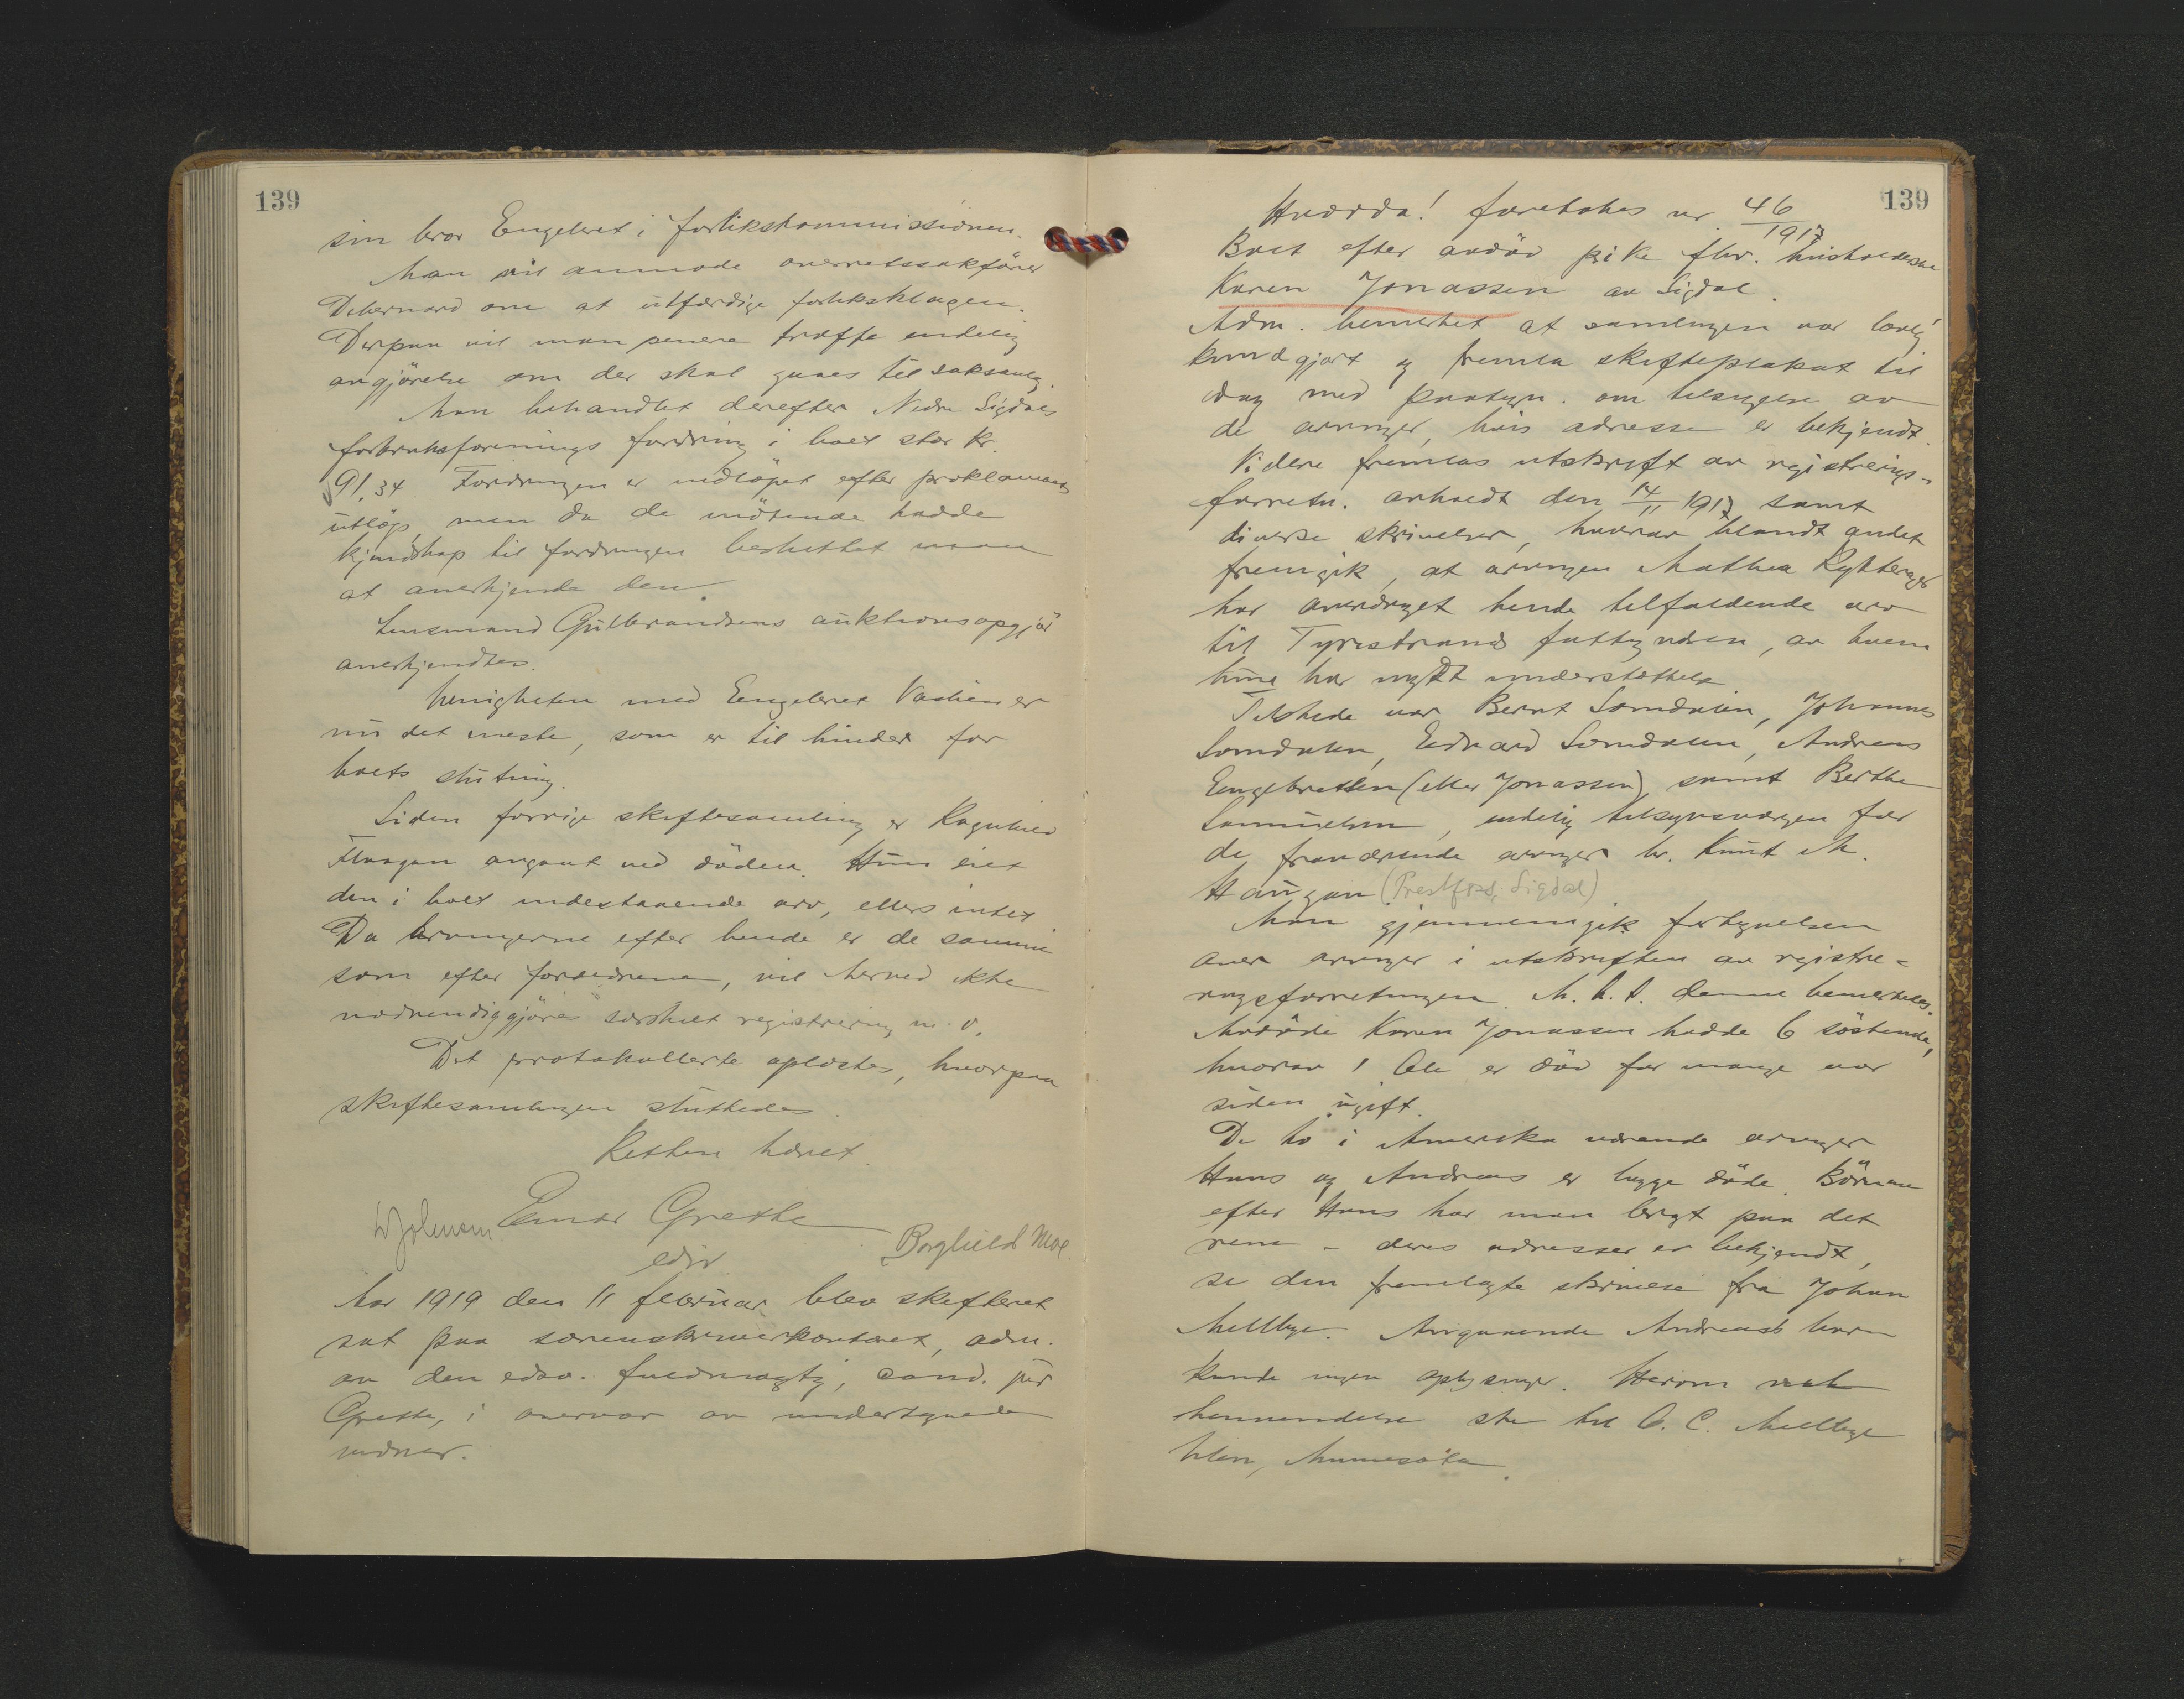 139
sin bror Engebret i forlikskommissionen.
Man vil anmode overretssakfører
Debernard om at utfærdige forliksklagen.
Derpaa vil man senere træffe endelig
avgjørelse om der skal gaaes til saksanlæg.
Man behandlet derefter Nedre Sigdals
forbruksforenings fordring i boet stor kr.
91,34. Fordringen er indløpet efter proklamaets
utløp, men da de møtende hadde
kjendskap til fordringen besluttet man
at anerkjende den.
Lensmand Gulbrandsens auktionsopgjør
anerkjendtes.
Uenigheten med Engebret Vadien er
nu det meste, som er til hinder for
boets slutning.
Siden forrige skiftesamling er Ragnhild
Flaagan avgaat ved døden. Hun eiet
den i boet indestaaende arv, ellers intet
Da arvingerne efter hende er de samme
som efter forældrene, vil herved ikke
nødvendiggjøres særskilt registrering m.v.
Det protokollerte oplæstes, hvorpaa
skiftesamlingen sluttedes.
Retten hævet.
Einar Grette
edsv.
Borghild Moe
Aar 1919 den 11 februar blev skifteret
sat paa sorenskriverkontoret, adm.
av den edsv. fuldmægtig, cand. jur
Grette, i overvær av undertegnede
vidner.
139
Hvorda! foretokes nr 46/1917
Boet efter avdød pike fhv. husholderske
Karen Jonassen av Sigdal.
Adm. bemerket at samlingen var lovlig
kundgjort og fremla skifteplakat til
idag med paategn. om tilsigelse av
de arvinger, hvis adresse er bekjendt.
Videre fremlas utskrift av registrerings-
forretn. avholdt den 14/11 1917 samt
diverse skrivelser, hvorav blandt andet
fremgik, at arvingen Mathea Rytterager
har overdraget hende tilfaldende arv
til Tyristrands fattigvæsen, av hvem
hun har nydt understøttelse
Tilstede var Bernt Somdalen, Johannes
Somdalen, Edvard Somdalen, Andreas
Engebretsen (eller Jonassen) samt Berthe
Samuelsen, endelig tilsynsværgen for
de fraværende arvinger hr. Knut M.
Haugan (Prestfoss, Sigdal)
Man gjennemgik fortegnelsen
over arvinger i utskriften av registre-
ringsforretningen. M.h.t. denne bemerkedes.
Avdøde Karen Jonassen hadde 6 søskende,
hvorav 1 Ole er død for mange aar
siden ugift.
De to i Amerika værende arvinger
Hans og Andreas er begge døde. Børnene
efter Hans har man bragt paa det
rene – deres adresser er bekjendt,
se den fremlagte skrivelse fra Johan
Mellbye. Angaaende Andreas's barn
kunde ingen oplysninger. Herom
henvendelse ske til O. C. Mellbye
Ulen, Minnesota.